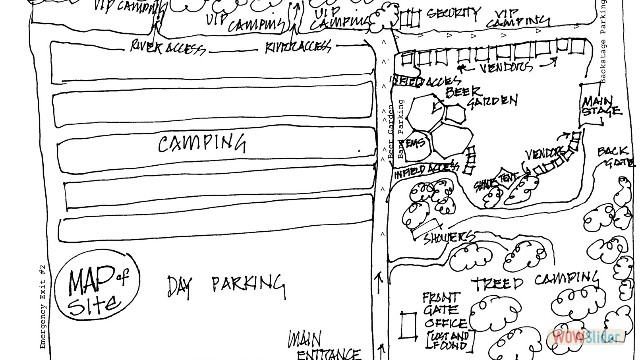 VIP CAMPING
VIP CAMPING
VIP CAMPING
SECURITY
VIP CAMPING
Backstage Parking
RIVER ACCESS
RIVER ACCESS
VENDORS
INFIELD ACCESS
BEER GARDEN
MAIN STAGE
Beer Garden
Band Parking
CAMPING
VENDORS
BACK GATE
INFIELD ACCESS
SHOWERS
MAP of SITE
DAY PARKING
TREED CAMPING
Emergency Exit #2
FRONT GATE OFFICE
[LOST AND FOUND
MAIN ENTRANCE
WOWSlider